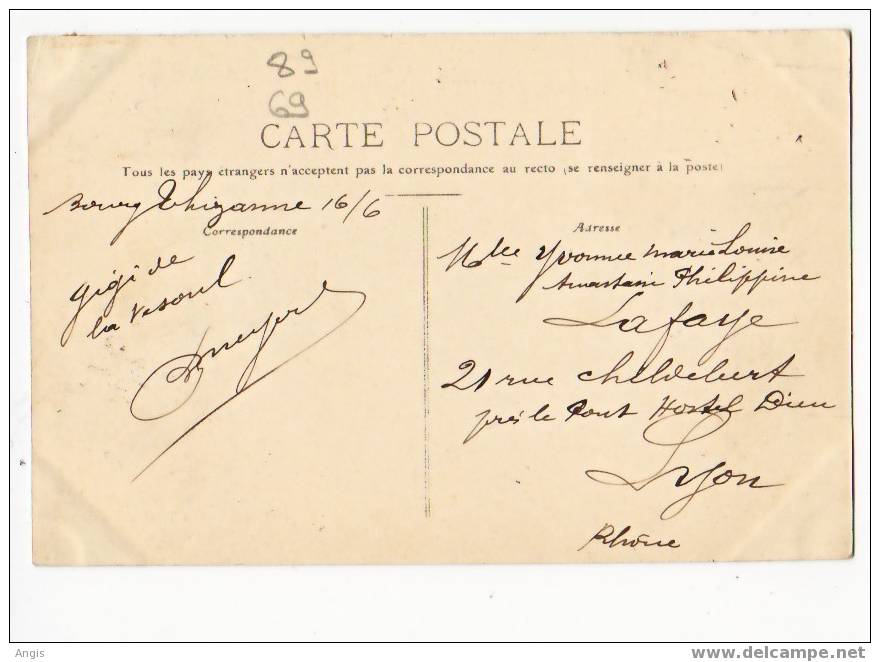 89
69
CARTE POSTALE
Tous les pays étrangers n'acceptent pas la correspondance au recto (se renseigner à la poste)
Bourg Thizanne 16/6
Correspondance
Adresse
gigi de
la Vesoul
Mlle Yvonne Marie Louise
Philippine
Lafaye
21 rue Childebert
près le Pont Hostel Dieu
Lyon
Rhône
Angis
www.delcampe.net